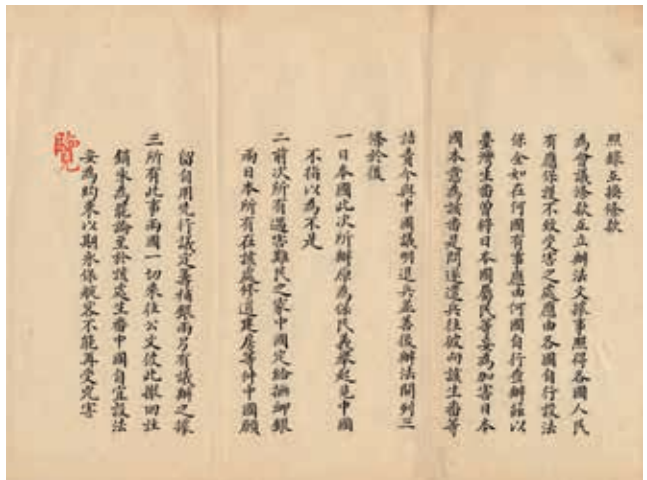 照錄互換條款
為會議條款互立辦法文據事照得各國人民
有應保護不致受害之處應由各國自行設法
保全如在何國有事應由何國自行查辦茲以
臺灣生番曾將日本國屬民等妄為加害日本
國本意為該番是問遂遣兵往彼向該生番等
詰責今與中國議明退兵並善後辦法開列三
條於後
一日本國此次所辦原為保民義舉起見中國
不指以為不是
二前次所有遇害難民之家中國定給撫卹銀
兩日本所有在該處修道建房等件中國願
留自用先行議定籌補銀兩另有議辦之據
三所有此事兩國一切來往公文彼此撤回註
銷永為罷論至於該處生番中國自宜設法
妥為約束以期永保航客不能再受兇害
覽